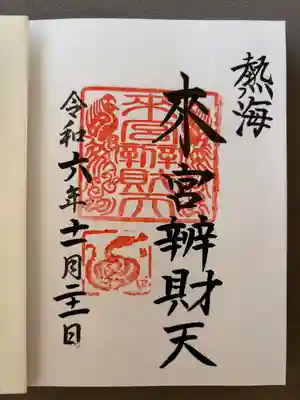 熱海
來宮辨財天
令和六年十一月二十一日
来宮
辨財天